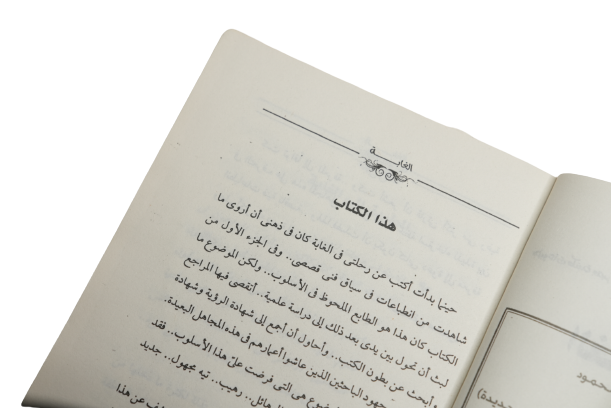 الغابة
هذا الكتاب
حينما بدأت أكتب عن رحلتى فى الغابة كان فى ذهنى أن أروى ما
شاهدت من انطباعات فى سياق فنى قصصى.. وفى الجزء الأول من
الكتاب كان هذا هو الطابع الملحوظ فى الأسلوب.. ولكن الموضوع ما
لبث أن تحول بين يدى بعد ذلك إلى دراسة علمية.. أتقصى فيها المراجع
وأبحث عن بطون الكتب.. وأحاول أن أجمع إلى شهادة الرؤية وشهادة
جهود الباحثين الذين عاشوا أعمارهم فى هذه المجاهل البعيدة.
هى التى فرضت علىّ هذا الأسلوب.. فقد
الهائل.. رهيب.. تيه مجهول.. جديد
عن هذا